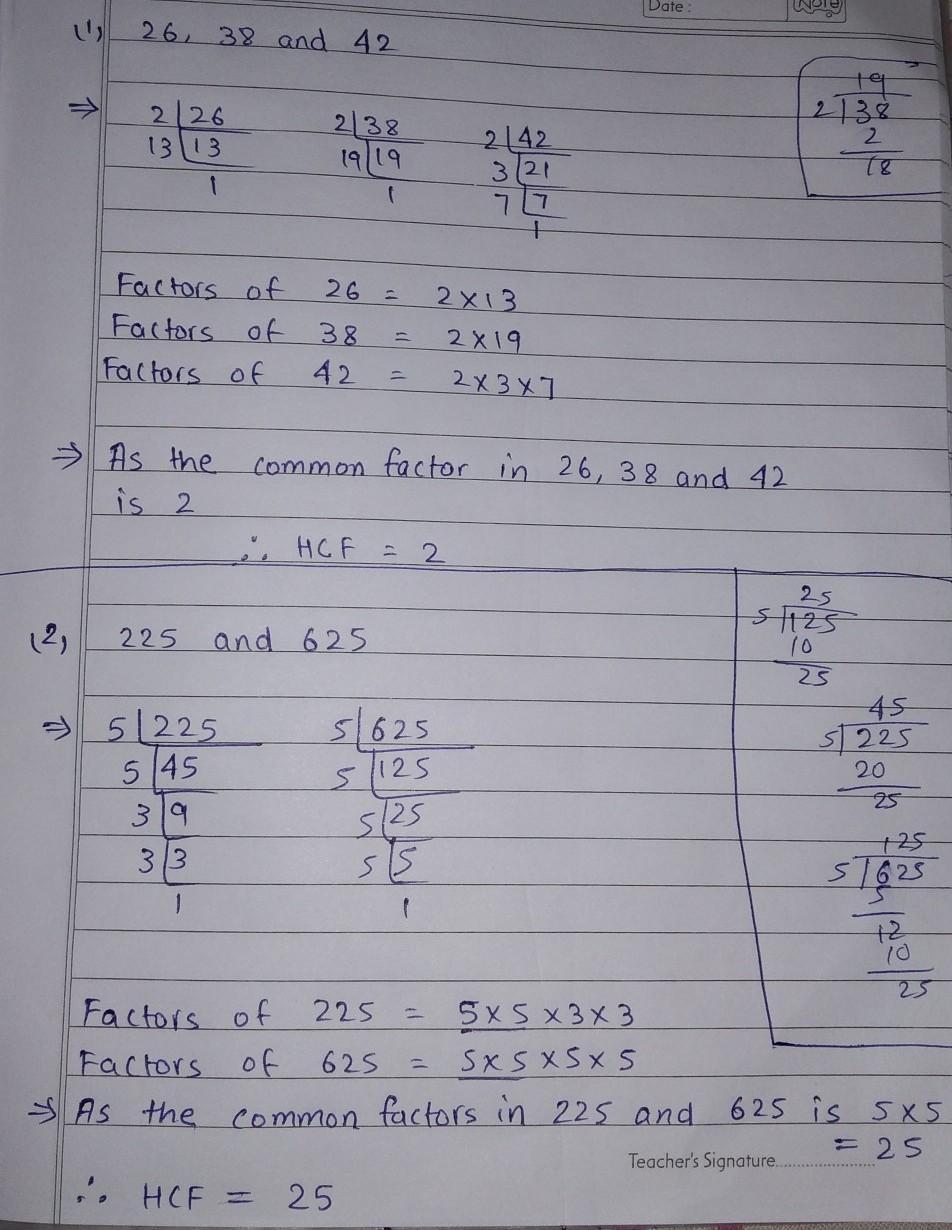 Date :
Note
(1) 26, 38 and 42
19
2 38
2
18
⇒ 2 26 2 38 2 42
13 13 19 19 3 21
1 1 7 7
1
Factors of 26 = 2×13
Factors of 38 = 2×19
Factors of 42 = 2×3×7
⇒ As the common factor in 26, 38 and 42
is 2
∴ HCF = 2
25
5 125
10
25
(2) 225 and 625
45
5 225
20
25
125
5 625
5
12
10
25
⇒ 5 225 5 625
5 45 5 125
3 9 5 25
3 3 5 5
1 1
Factors of 225 = 5×5×3×3
Factors of 625 = 5×5×5×5
⇒ As the common factors in 225 and 625 is 5×5
= 25
Teacher's Signature........................
∴ HCF = 25